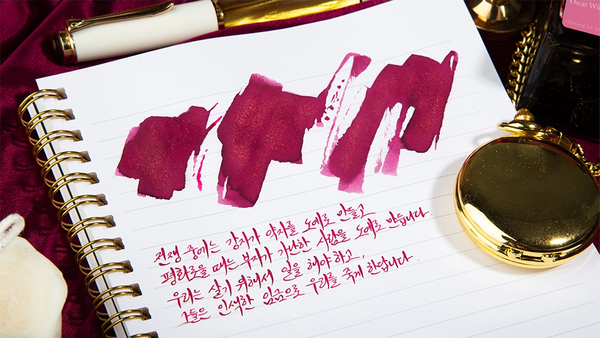 Oscar Wil
전쟁 중에는 강자가 약자를 노예로 만들고
평화로울 때는 부자가 가난한 사람을 노예로 만듭니다.
우리는 살기 위해서 일을 해야 하고,
그들은 인색한 임금으로 우리를 죽게 한답니다.